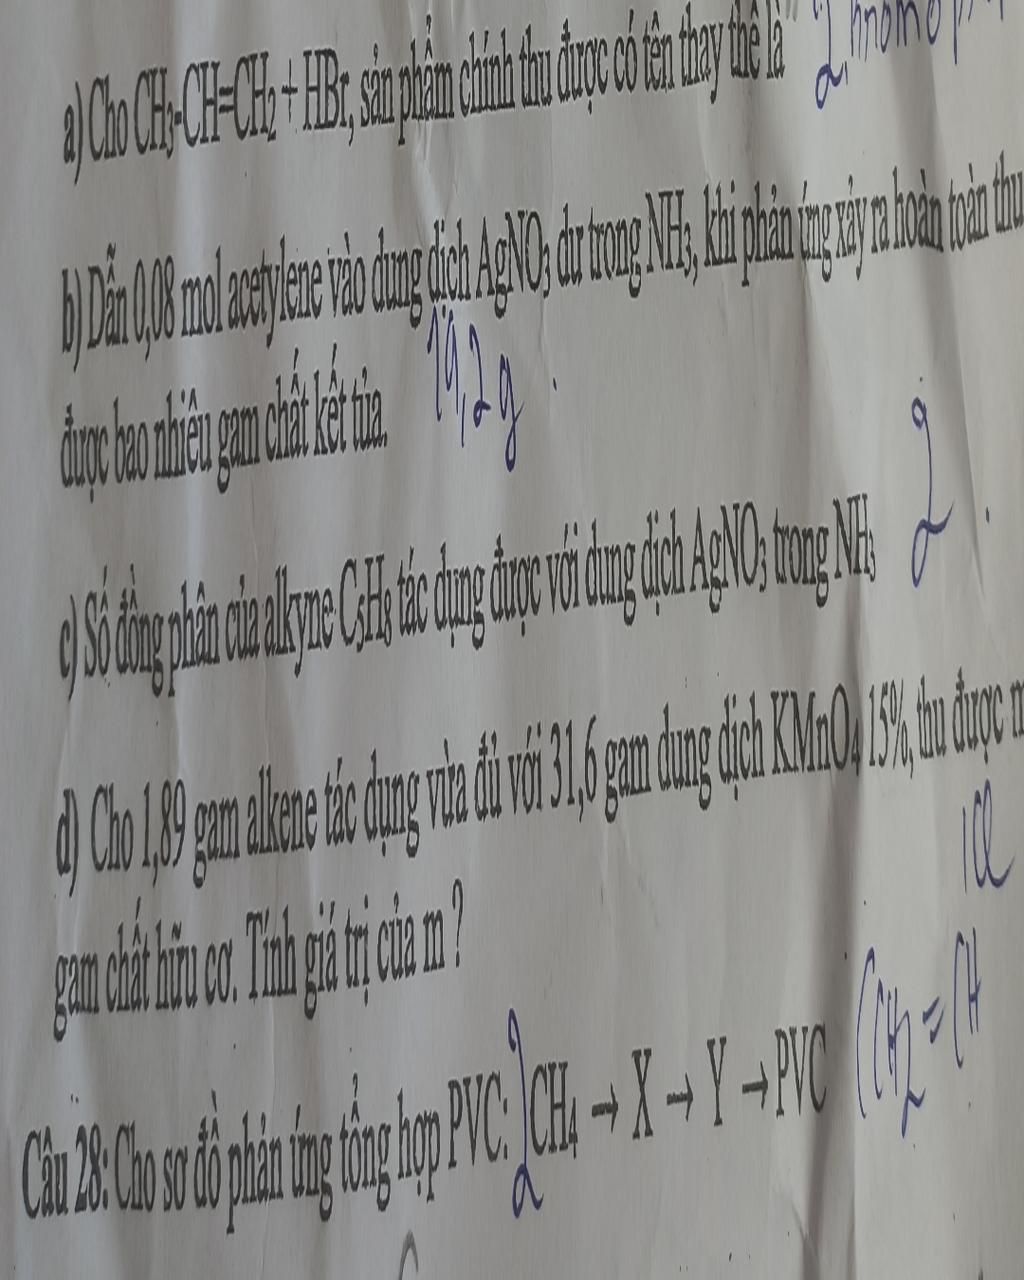 a) Cho CH₃-CH=CH₂ + HBr, sản phẩm chính thu được có tên thay thế là
b) Dẫn 0,08 mol acetylene vào dung dịch AgNO₃ dư trong NH₃, khi phản ứng xảy ra hoàn toàn thu
được bao nhiêu gam chất kết tủa. 19,2 g.
c) Số đồng phân của alkyne C₅H₈ tác dụng được với dung dịch AgNO₃ trong NH₃ 2.
d) Cho 1,89 gam alkene tác dụng vừa đủ với 31,6 gam dung dịch KMnO₄ 15%, thu được m
gam chất hữu cơ. Tính giá trị của m ?
Câu 28: Cho sơ đồ phản ứng tổng hợp PVC: 2CH₄ → X → Y → PVC (CH₂ = CH